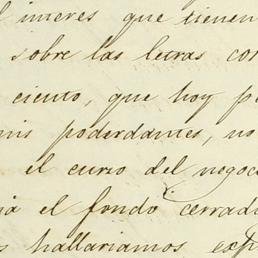 l interes que tienen
sobre las letras con
ciento, que hoy p
mis poderdantes, no
el curso del negoc
ja el fondo cerrad
s hallariamos exp